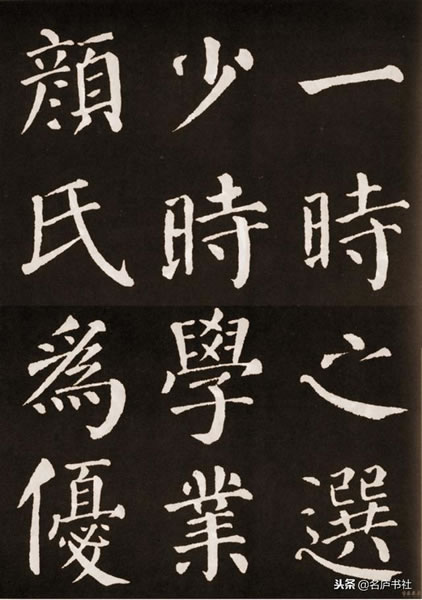 一時之選
少時學業
顔氏爲優
头条@名庐书社